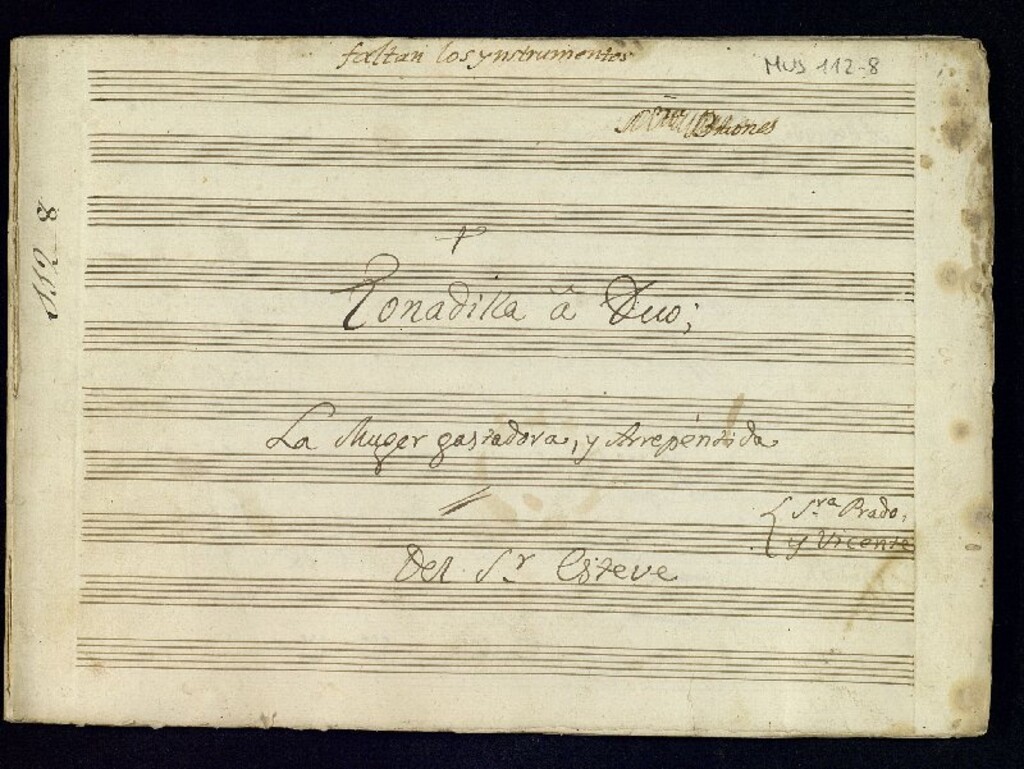 faltan los ynstrumentos
MUS 112-8
Briones
112-8
Tonadilla â Duo;
La Muger gastadora, y Arrepéntida
Sra Prado,
y Vicente
Del Sr Esteve